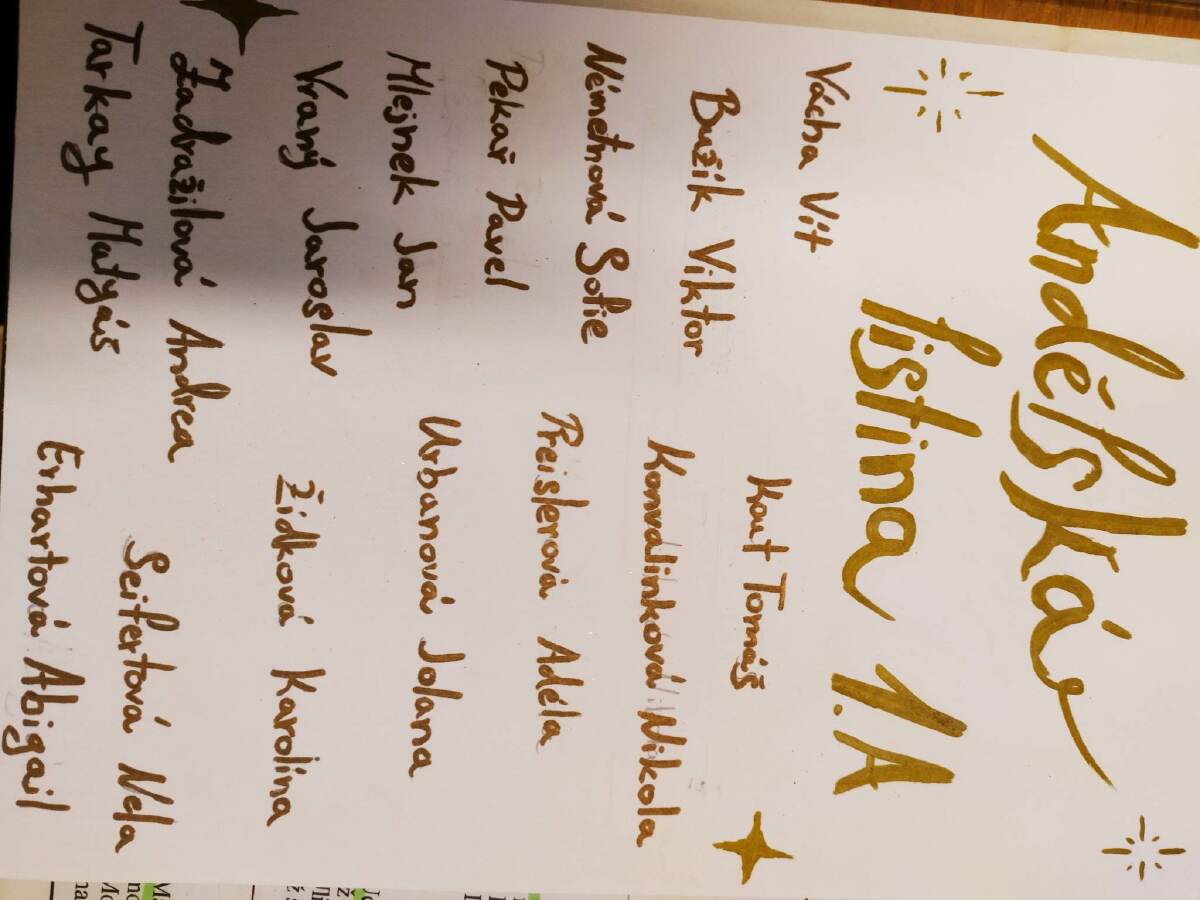 Andělská
listina 1.A
Vácha Vít
Kout Tomáš
Bužík Viktor
Konvalinková Nikola
Némethová Sofie
Preislerová Adéla
Pekař Pavel
Urbanová Jolana
Mlejnek Jan
Židková Karolína
Vraný Jaroslav
Seifertová Nela
Zadražilová Andrea
Erhartová Abigail
Tarkay Matyáš